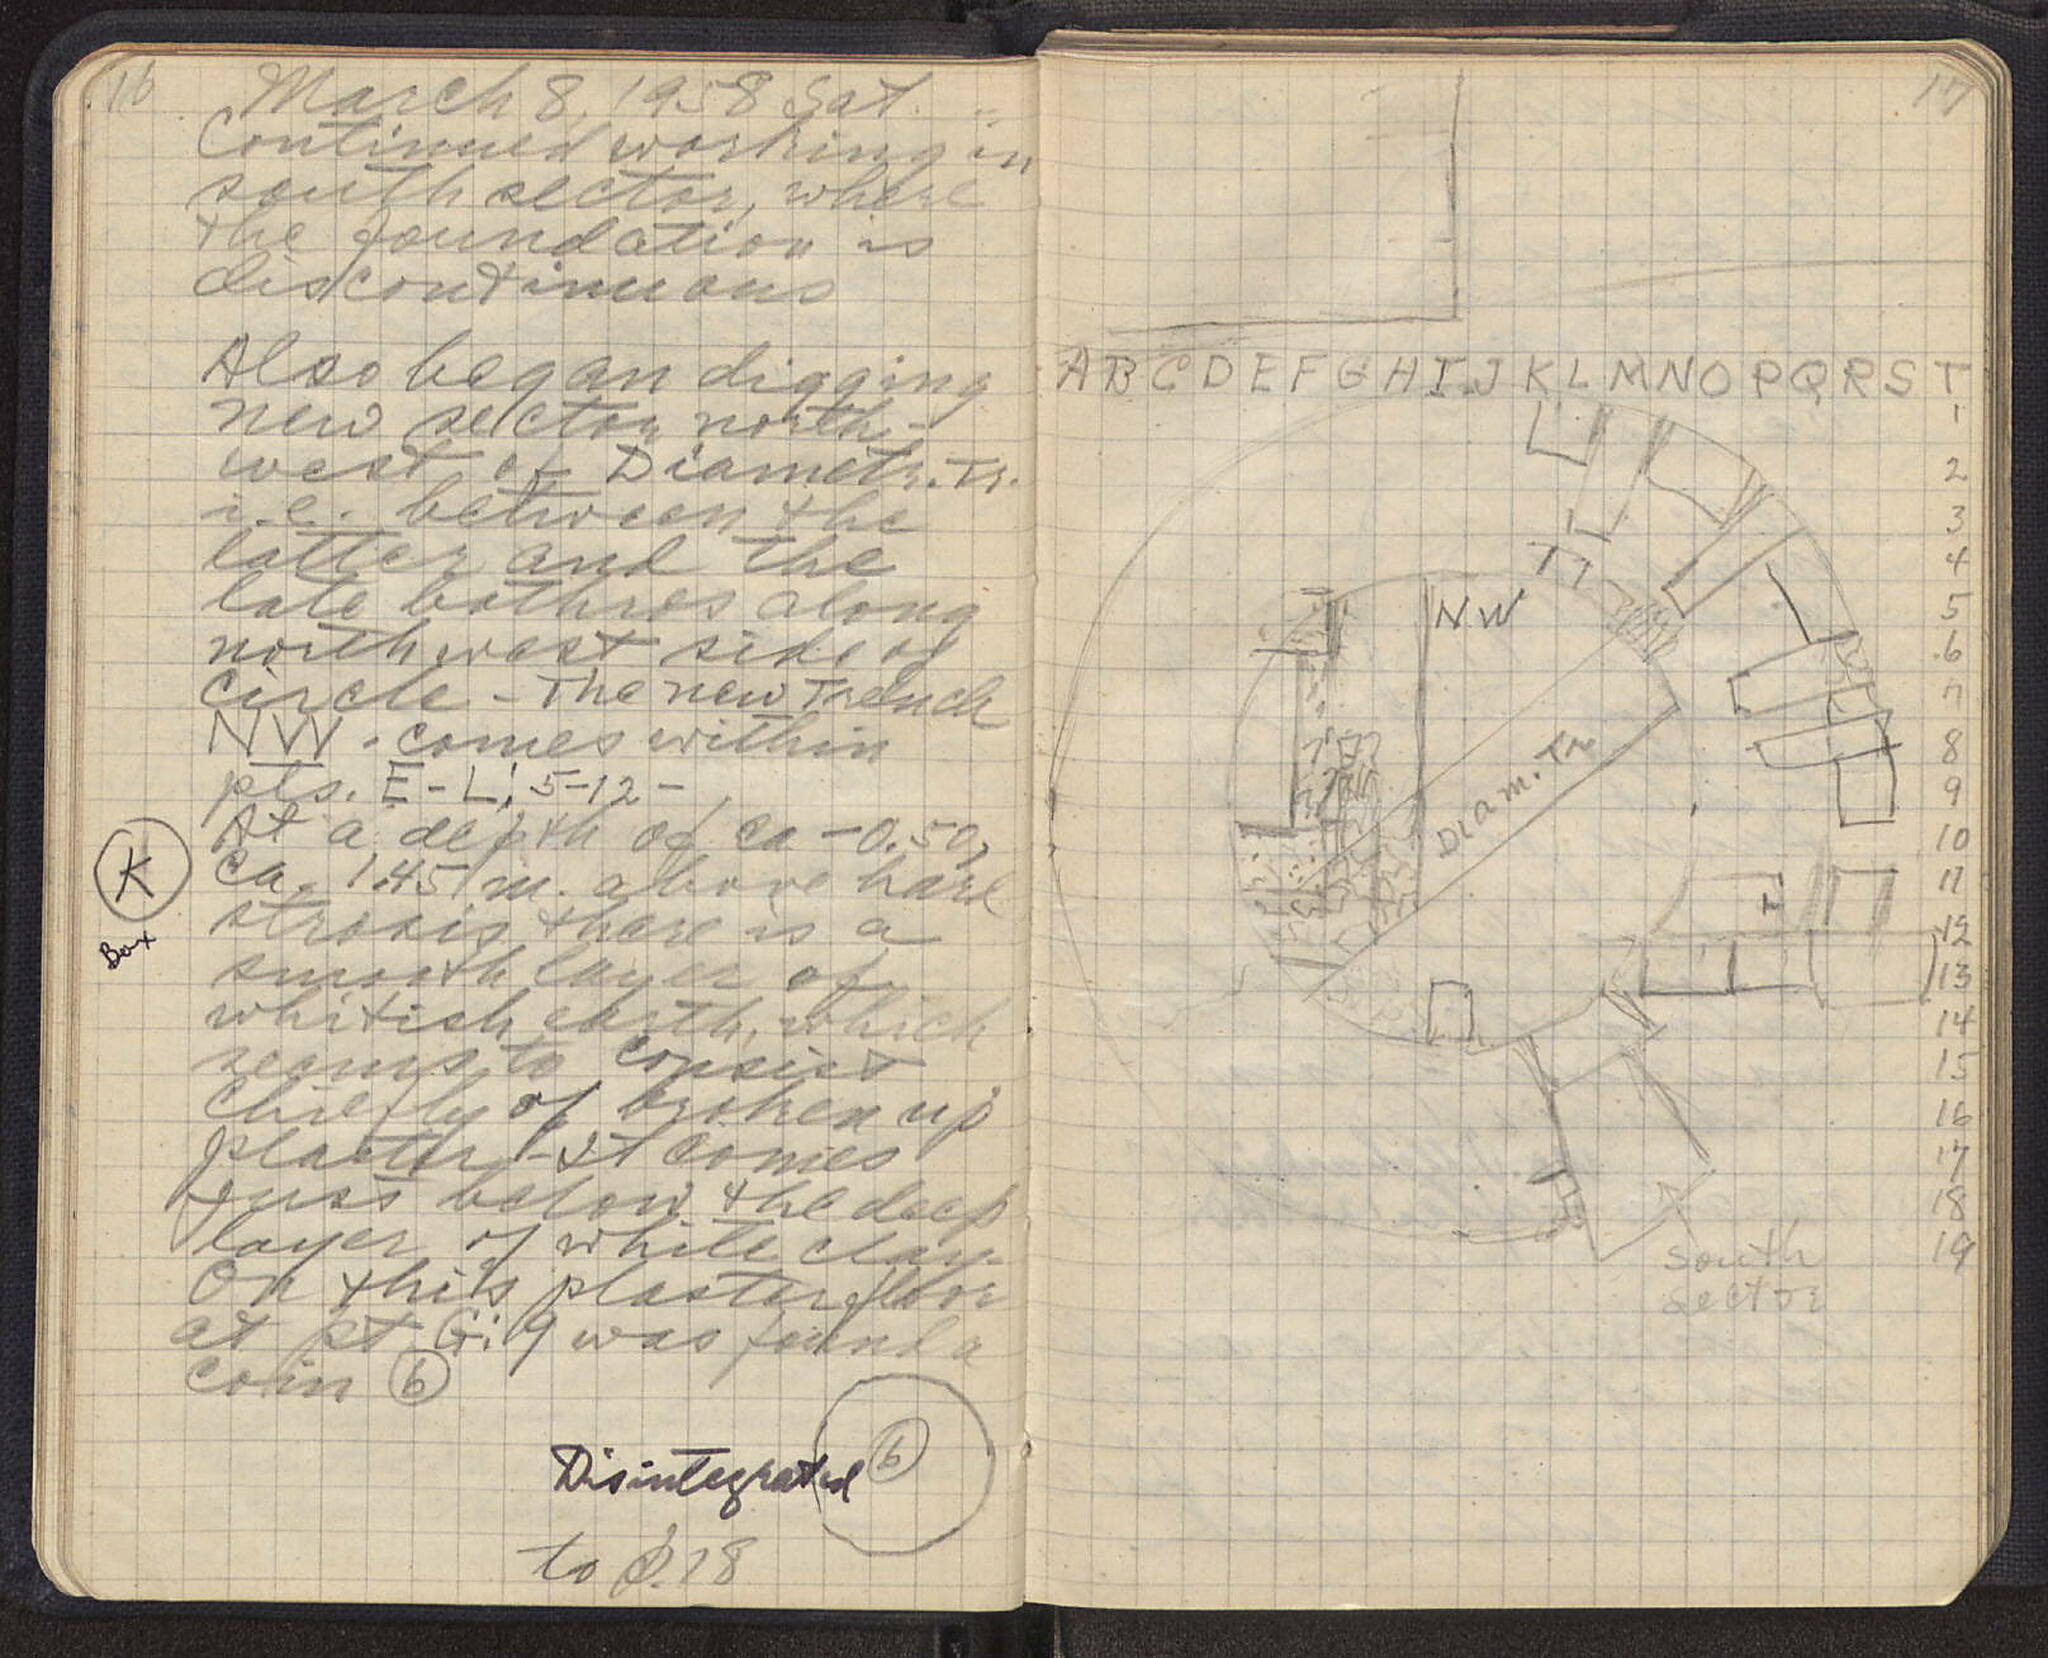 16
March 8, 1958 Sat.
Continued working in
south sector, where
the foundation is
discontinuous
Also began digging
new sector north-
west of Diametr. Tr.
i.e. between the
latter and the
late bothros along
northwest side of
circle - The new Trench
NW. comes within
pls. E-L; 5-12 -
At a depth of ca -0.50,
ca. 1.45 m. above hard
strosis there is a
smooth layer of
whitish earth, which
seems to consist
chiefly of broken up
plaster - It comes
just below the deep
layer of white clay.
On this plaster floor
at pt G:9 was found a
coin (6)
K
Box
Disintegrated
6
to p. 18
17
A B C D E F G H I J K L M N O P Q R S T
1
2
3
4
5
6
7
8
9
10
11
12
13
14
15
16
17
18
19
NW
Diam. Tr
South
Sector